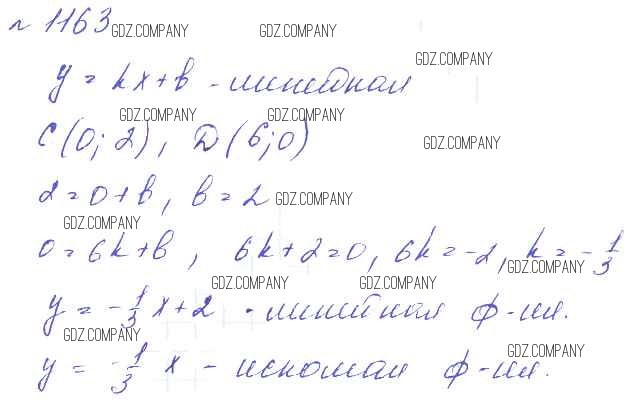 № 1163 GDZ.COMPANY GDZ.COMPANY
GDZ.COMPANY
y = kx + b - линейная
GDZ.COMPANY GDZ.COMPANY
C(0; 2), D(6; 0) GDZ.COMPANY
2 = 0 + b, b = 2 GDZ.COMPANY
GDZ.COMPANY
0 = 6k + b, 6k + 2 = 0, 6k = -2, k = -1/3
GDZ.COMPANY
GDZ.COMPANY GDZ.COMPANY
y = -1/3 x + 2 - линейная ф-ия.
GDZ.COMPANY GDZ.COMPANY
y = -1/3 x - искомая ф-ия.